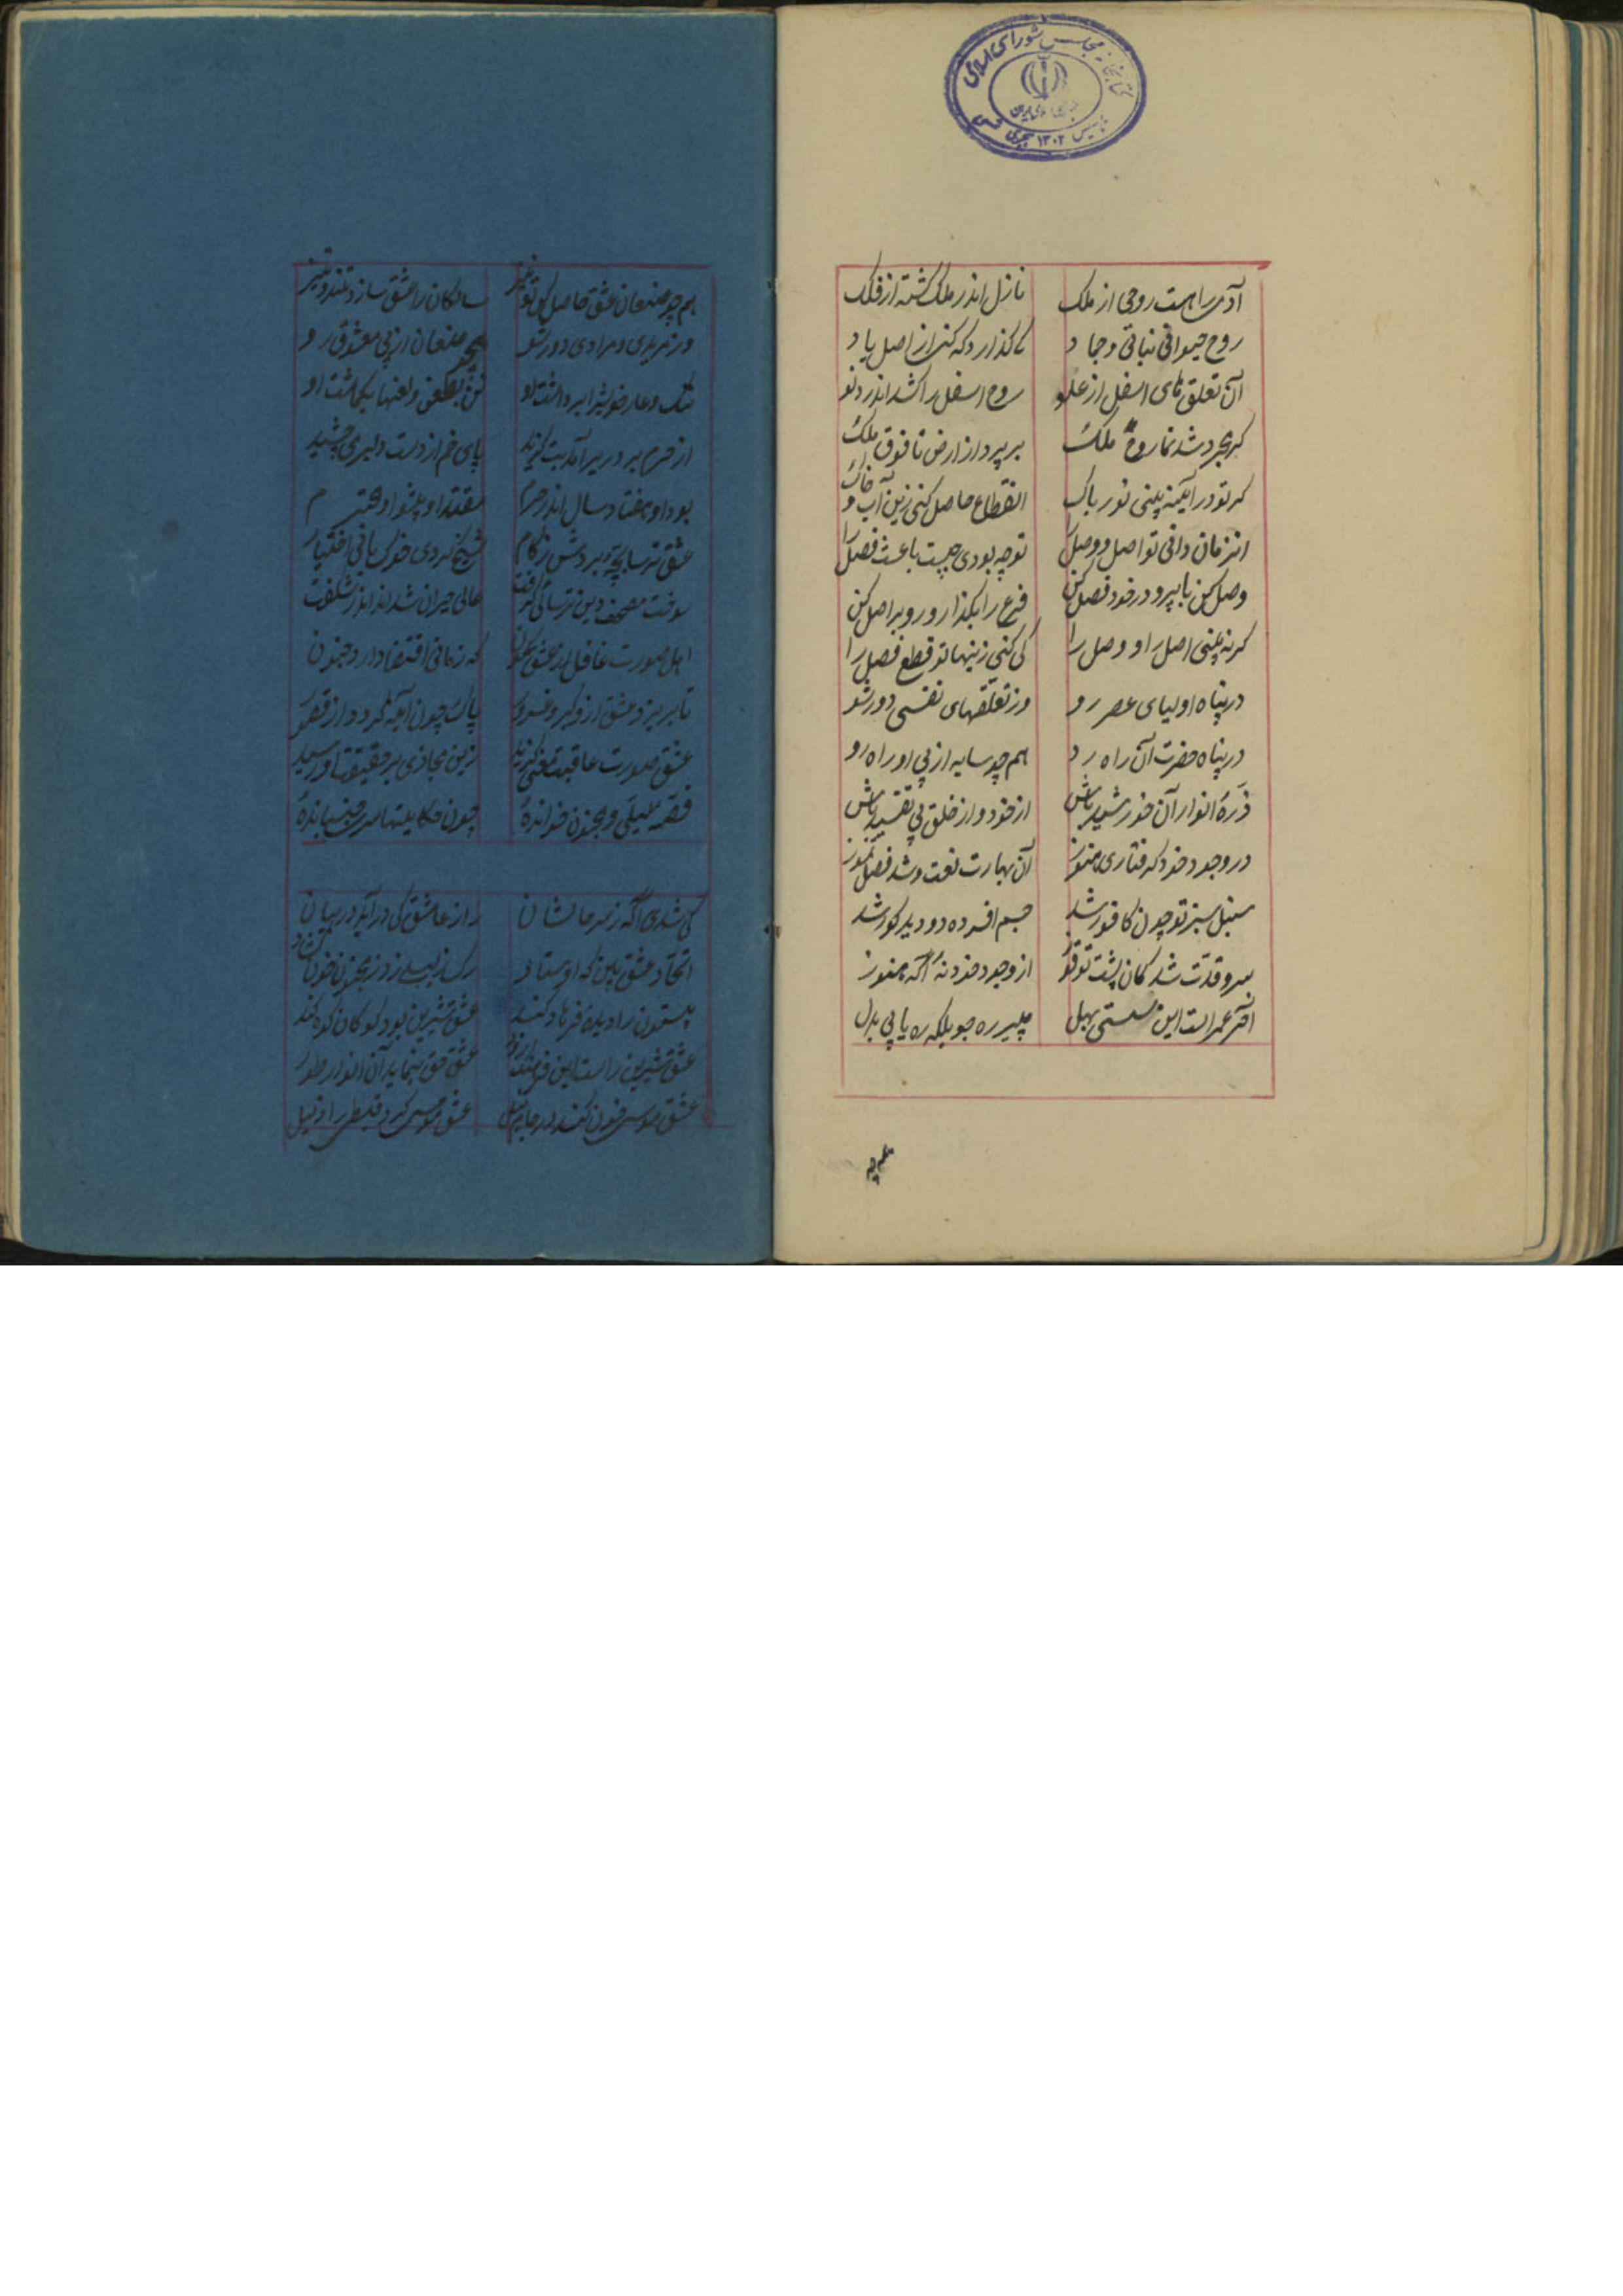 کتابخانه مجلس شورای اسلامی
تاسیس ۱۳۰۲ هجری شمسی
آدمی را هست روحی از ملک نازل اندر ملک گشته از فلک
روح حیوانی نباتی و جماد کذارد که کند از اصل یاد
آن تعلق های اسفل از علو روح اسفل را کشد اندر دنو
کر مجرد شد نما روح ملک بر پرد از ارض تا فوق ملک
کر تو در آیینه بینی نور پاک انقطاع حاصل کنی زین آب و خاک
انزمان دانی تو اصل و وصل را تو چه بودی چیست باعث فصل را
وصل کن با پیر و در خود فصل کن فرع را بگذار و رو بر اصل کن
کر نه بینی اصل را و وصل را کی کنی زینها تو قطع فصل را
در پناه اولیای عصر رو وز تعلقهای نفسی دور شو
در پناه حضرت آن راه رد هم چو سایه از پی او راه رو
ذرهٔ انوار آن خورشید باش از خود و از خلق بی تقیید باش
در وجود خود گرفتاری هنوز آن بهارت رفت و شد فصل تموز
سنبل سبز تو چون کافور شد جسم افسرده دو دید کور شد
سرو قدت شد کمان پشت تو قوز از وجود خود نهٔ آگه هنوز
آخر عمر است این سستی بهل پیر ره جو بلکه ره یابی بدل
هم چو صنعان عشق حاصل کو تو نیز سالکان را عشق سازد تند و تیز
وز مریدی و مرادی دور شو همچو صنعان از پی معشوق رو
ننک و عار خویش را برداشت او
از حرم بر دیر آمد بت گزید پای خم از دست دلبر می چشید
بود او هفتاد سال اندر حرم مقتدا و پیشوا و محترم
عشق ترسا بچهٔ بردش زکام شیخ کردی خوک بانی اختیار
سوخت مصحف دین ترسائی گرفت عالمی حیران شدند اندر شگفت
اهل صورت غافل از عشق که زمانی اقتضا دارد جنون
تا بریزد عشق از و کبر و پاک چون آیکه گردد از
عشق صورت عاقبت معنی گزید زین مجازی بر حقیقتها رسید
قصه لیلی و مجنون خواندهٔ چون حکایتها سر جنباندهٔ
کی شدی آگه ز سر حالشان راز عاشق کی در آید در بیان
اتحاد عشق بین که اوستاد رک ز لیلی زد ز مجنون خون گشاد
بیستون را دیدهٔ فرهاد کند عشق شیرین بود کو کان کوه کند
عشق شیرین راست این عشق حق بنماید آن انوار طور
عشق موسی خون کند در جام نیل عشق موسی کرد قبطی را ذلیل